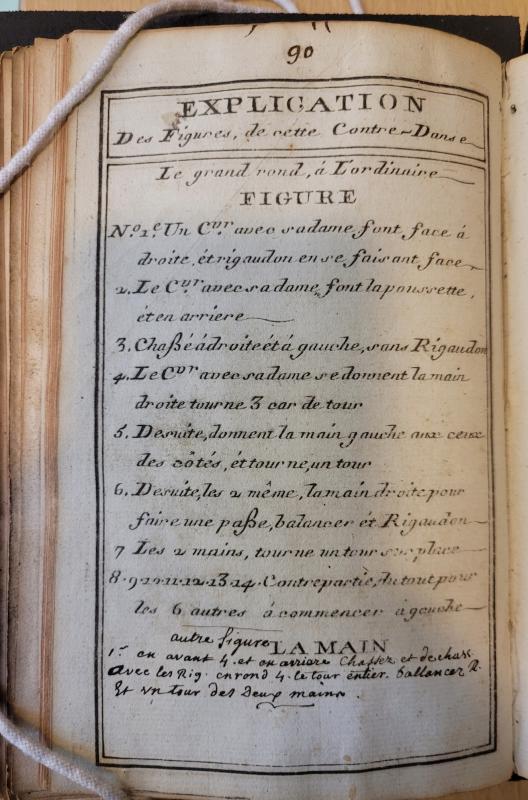 90
EXPLICATION
Des Figures, de cette Contre-Danse
Le grand rond, á L'ordinaire
FIGURE
No. 1e Un Cvr avec sadame font face á
droite, ét rigaudon en se faisant face
2. Le Cvr avec sadame, font la poussette,
ét en arriere
3. Chaßé á droite ét á gauche, sans Rigaudon
4. Le Cvr avec sadame se donnent la main
droite tourne 3 car de tour
5. Desuite, donnent la main gauche aux ceux
des côtés, ét tourne, un tour
6. Desuite, les 2 même, la main droite pour
faire une paße, balancer ét Rigaudon
7 Les 2 mains, tourne un tour sur place
8. 9 10 11. 12. 13. 14. Contrepartie, du tout pour
les 6 autres á commencer á gauche
autre figure
LA MAIN
1r en avant 4. et en arriere Chassez et dechass
avec les Rig. en rond 4. le tour entier. ballancez R.
Et un tour des Deux mains.